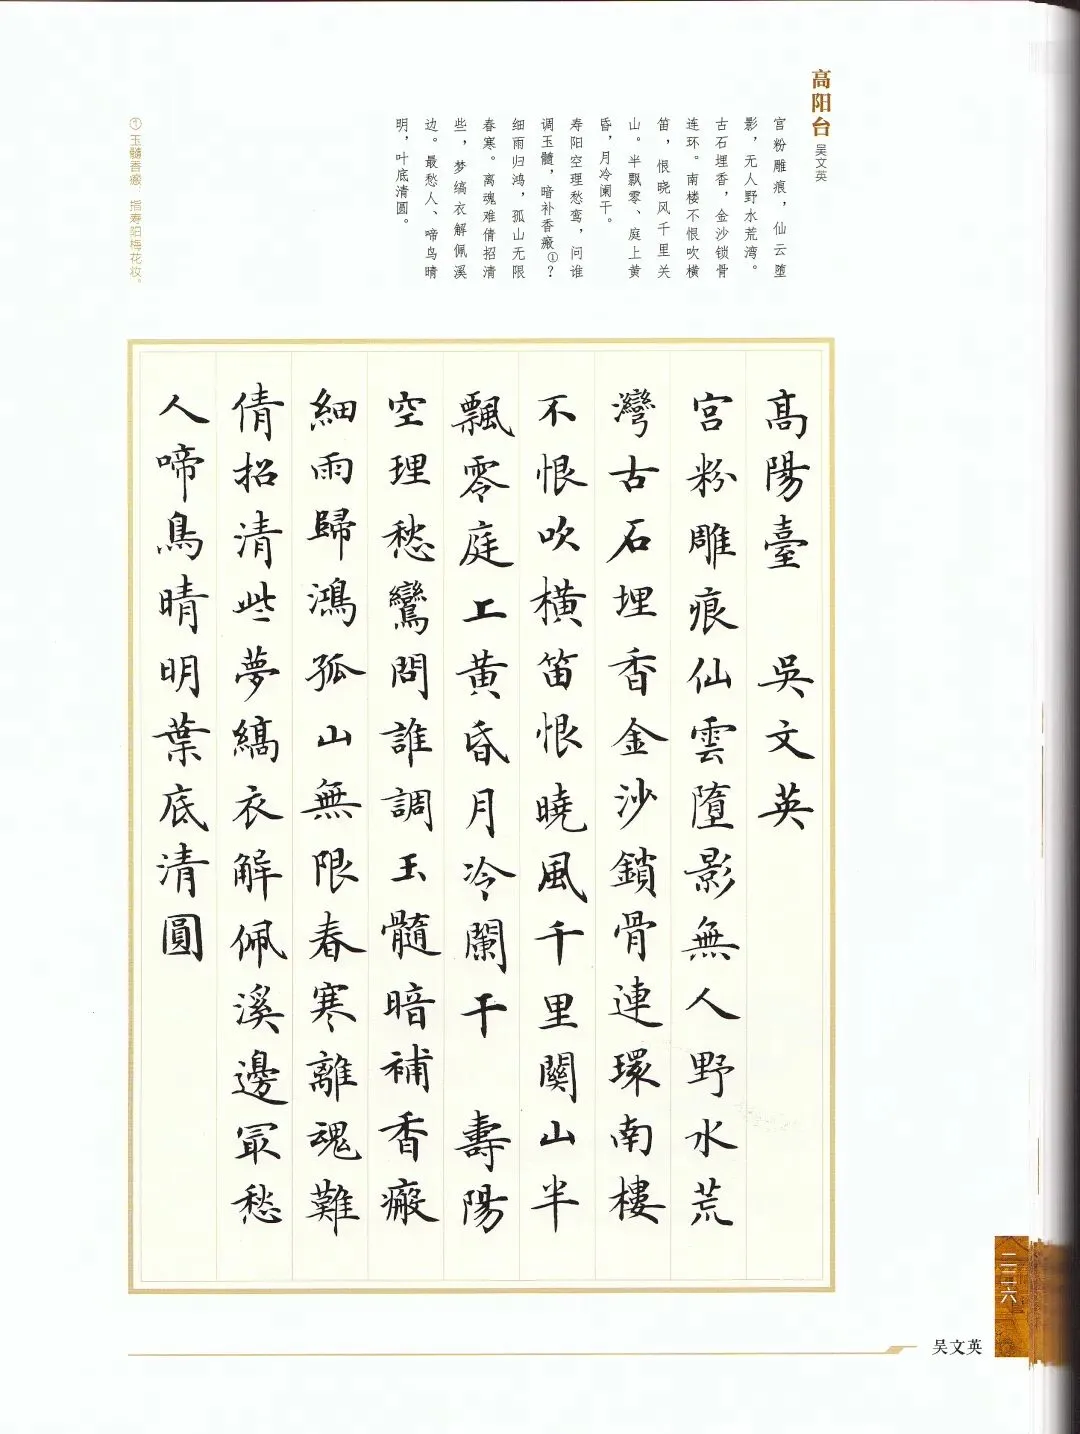 高阳台
吴文英
宫粉雕痕，仙云堕
影，无人野水荒湾。
古石埋香，金沙锁骨
连环。南楼不恨吹横
笛，恨晓风千里关
山。半飘零、庭上黄
昏，月冷阑干。
寿阳空理愁鸾，问谁
调玉髓，暗补香瘢①？
细雨归鸿，孤山无限
春寒。离魂难倩招清
些，梦缟衣解佩溪
边。最愁人、啼鸟晴
明，叶底清圆。
①玉髓香瘢，指寿阳梅花妆。
高陽臺 吳文英
宫粉雕痕仙雲墮影無人野水荒
灣古石埋香金沙鎖骨連環南樓
不恨吹横笛恨曉風千里關山半
飄零庭上黄昏月冷闌干 壽陽
空理愁鸞問誰調玉髓暗補香瘢
細雨歸鴻孤山無限春寒離魂難
倩招清些夢縞衣解佩溪邊冣愁
人啼鳥晴明葉底清圓
二二六
吴文英